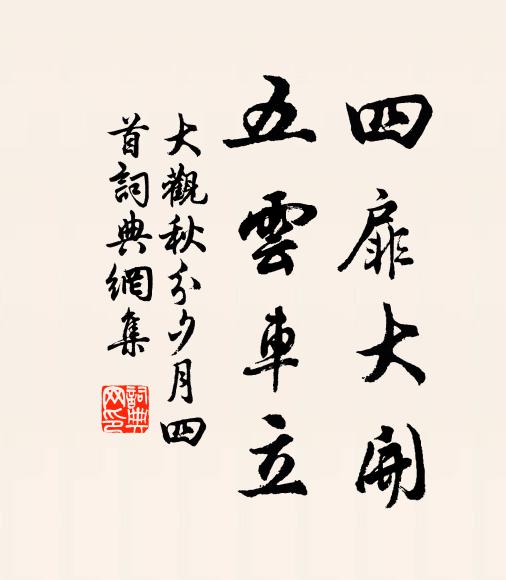 四扉大開
五雲車立
大觀秋分夕月四
首詞典網集
詞典
網印